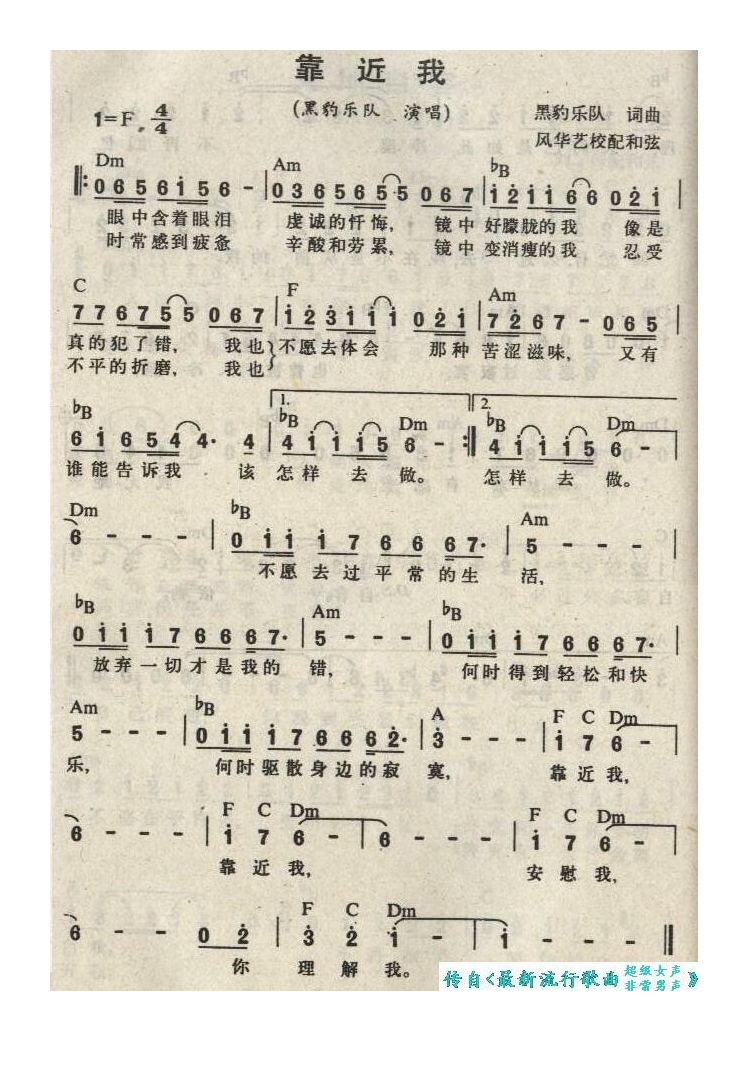 靠近我
(黑豹乐队 演唱)
黑豹乐队 词曲
1=F 4/4
风华艺校配和弦
Dm Am ♭B
0 6 5 6 i 5 6 - 0 3 6 5 6 5 5 0 6 7 i 2 i i 6 6 0 2 i
眼中含着眼泪 虔诚的忏悔, 镜中 好朦胧的我 像是
时常感到疲惫 辛酸和劳累, 镜中 变消瘦的我 忍受
C F Am
7 7 6 7 5 5 0 6 7 i 2 3 i i i 0 2 i 7 2 6 7 - 0 6 5
真的犯了错, 我也 不愿去体会 那种 苦涩滋味, 又有
不平的折磨, 我也
1. 2.
♭B ♭B Dm ♭B Dm
6 i 6 5 4 4· 4 4 i i i 5 6 - 4 i i i 5 6 -
谁能告诉我 该 怎样去做。 怎样去做。
Dm ♭B Am
6 - - - 0 i i i 7 6 6 6 7· 5 - - -
不愿去过平常的生 活,
♭B Am ♭B
0 i i i 7 6 6 6 7· 5 - - - 0 i i i 7 6 6 6 7·
放弃一切才是我的 错, 何时得到轻松和快
Am ♭B A F C Dm
5 - - - 0 i i i 7 6 6 6 2· 3 - - - i 7 6 -
乐, 何时驱散身边的寂 寞, 靠近我,
F C Dm F C Dm
6 - - - i 7 6 - 6 - - - i 7 6 -
靠近我, 安慰我,
F C Dm
6 - - 0 2 3 2 i - i - - -
你 理解我。
传自《最新流行歌曲 超级女声 非常男声》